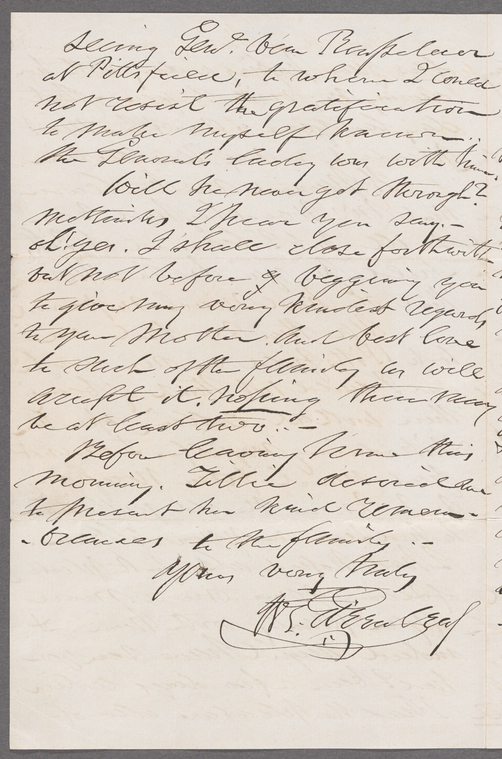 seeing Genl. Van Rensselaer
at Pittsfield, to whom I could
not resist the gratification
to make myself known..
the Generals lady was with him.
Will he never get through?
methinks I hear you say.-
oh! yes. I shall close forthwith
but not before begging you
to give my very kindest regards
to your Mother. And best love
to such of the family as will
accept it, hoping there may
be at least two.-
Before leaving home this
morning. Tillie desired me
to present her kind remem-
-brances to the family.-
Yours very truly